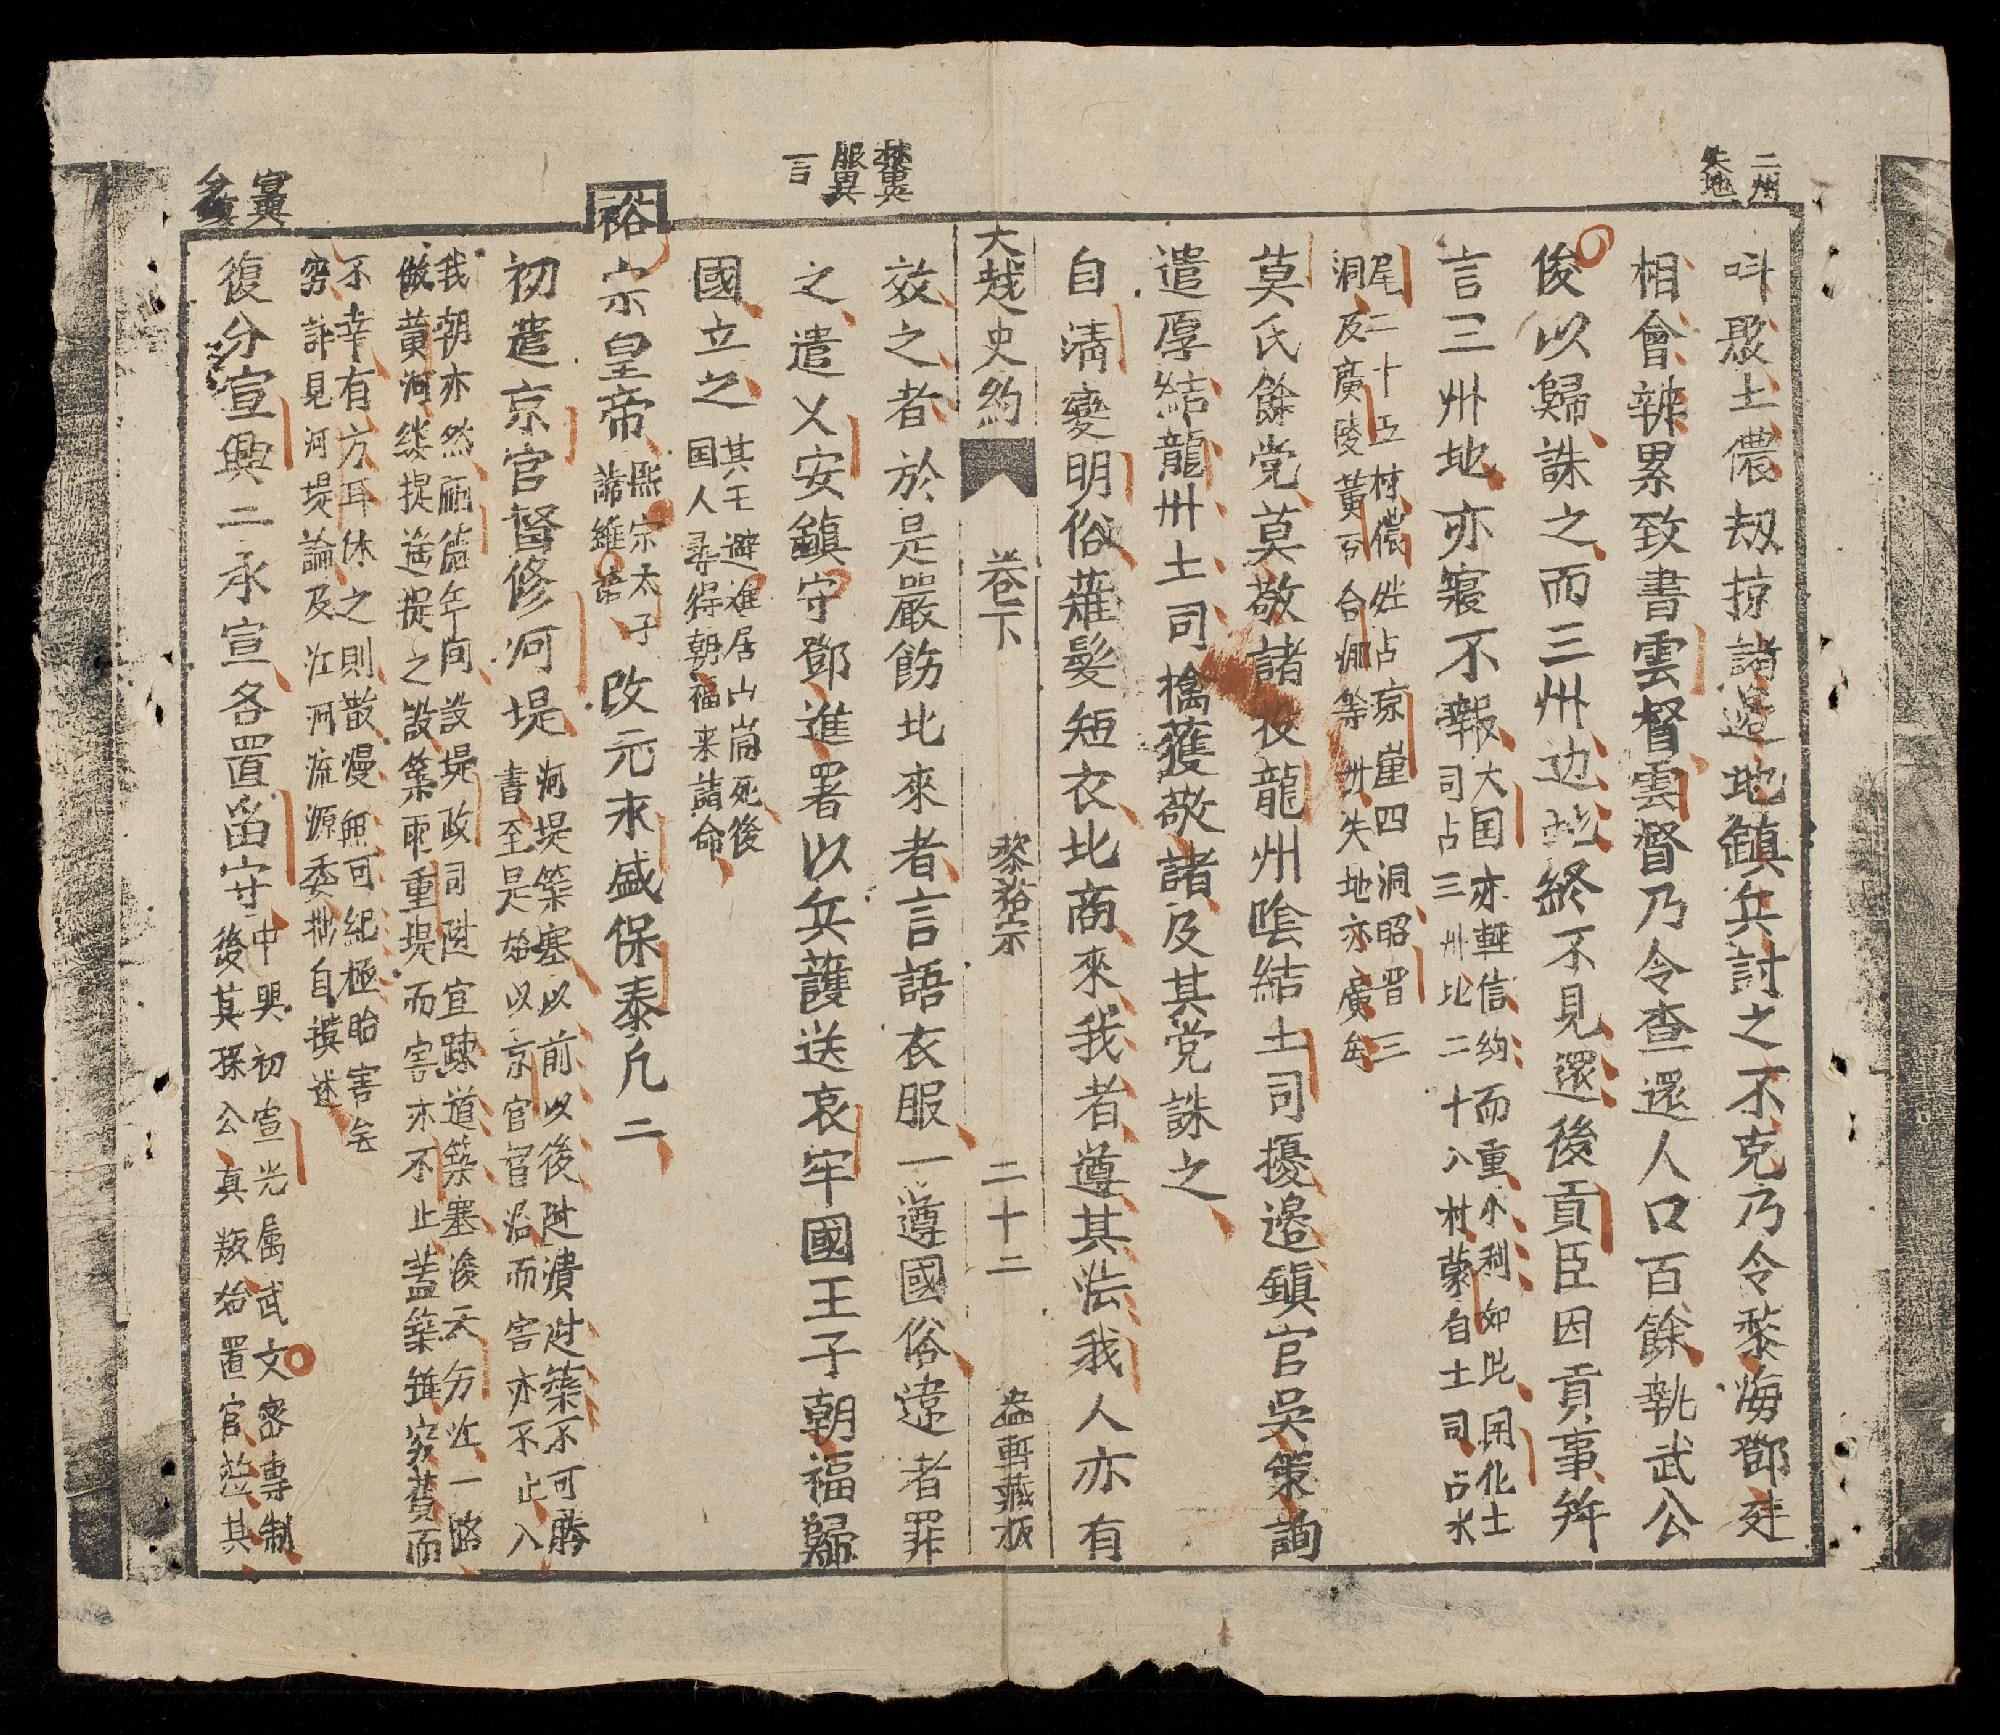 二州
失地
叫聚土儂刼掠諸邉地鎮兵討之不克乃令黎海鄧廷
相會辨累致書雲督雲督乃令查還人口百餘執武公
俊以歸誅之而三州边地終不見還後貢臣因貢事并
言三州地亦寢不報
大国亦輕信約而重小利如此開化土
司占三州比二十八村蒙自土司占水
尾二十五村儂姓占 崖四洞昭晋三
洞及廣陵黃 合 等州失地亦廣矣
莫氏餘党莫敬諸 龍州陰結土司擾邉鎮官吳策詢
遣厚結龍州土司擒獲敬諸及其党誅之
自清變明俗薙髮短衣北商來我者遵其法我人亦有
大越史約 卷下 黎裕宗 二十二 藏板
禁異
服異
言
效之者於是嚴飭北來者言語衣服一遵國俗違者罪
之遣乂安鎮守鄧進署以兵護送哀牢國王子朝福歸
國立之
其王避難居山崗死後
国人尋得朝福来請命
裕宗皇帝
熈宗太子
諦維
改元永盛保泰凡二
初遣京官督修河堤
河堤築塞以前以後 潰 築不可勝
書至是始以京官督治而害亦不止入
我朝亦然 年间設堤政司 宜疎道築塞 分 一路
做黃河 提 提之設築 重堤而害亦不止盖築 費而
不幸有方耳休之則散漫無可紀極貽害矣
詳見河堤論及江河流源委 自 述
宣興
復分宣興二承宣各置畄守
中興初宣光属武文密專制
後其孫公真叛始置官莅其